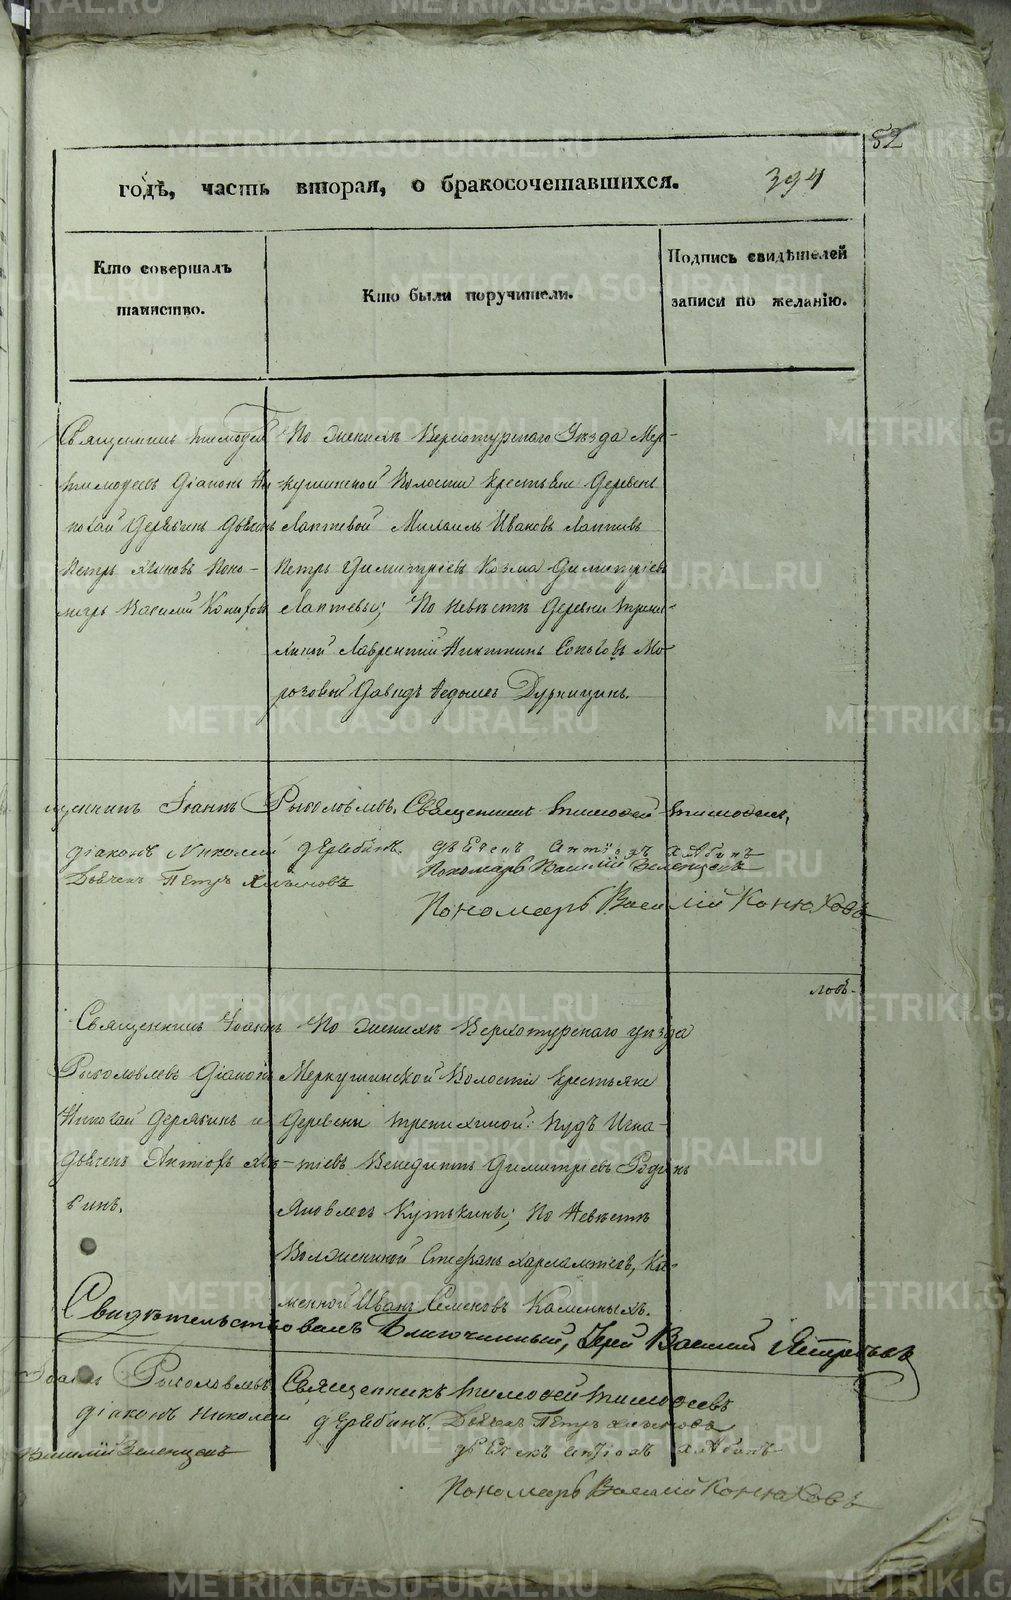 82
годѣ, часть вторая, о бракосочетавшихся.
394
Кто совершалъ
таинство.
Кто были поручители.
Подпись свидѣтелей
записи по желанію.
Священникъ Тимофей
Тимофеевъ Діаконъ Ни-
колай Дерябинъ Дьячекъ
Петръ Поно-
марь Василий Конюховъ
По женихѣ Верхотурскаго Уѣзда Мер-
кушинской Волости Крестьяне Деревень
Лаптевой Михаилъ Ивановъ Лаптевъ
Петръ Димитріевъ Козма Димитріевъ
Лаптевы; По невѣстѣ Деревни
Лаврентий Никитинъ Мо-
розовой Давидъ Дурницынъ.
Іоаннъ Рыболовлевъ. Священникъ Тимофей Тимофеевъ,
діаконъ Николай Дерябинъ. Дьячекъ Хлябинъ
Дьячекъ Петръ Пономарь Василій Зеленцовъ
Пономарь Василій Конюховъ
ловъ.
Священникъ Іоаннъ
Рыболовлевъ Діаконъ
Николай Дерябинъ и
Дьячекъ Хля-
бинъ.
По женихѣ Верхотурскаго уѣзда
Меркушинской Волости Крестьяне
Деревни Трепихиной: Иудъ Игна-
тіевъ Венедиктъ Димитріевъ Родионъ
Яковлевъ Кутькины; По Невѣстѣ
Стефанъ Харлампіевъ, Ка-
менной Иванъ Семеновъ Каменныхъ.
Свидѣтельствовалъ Благочинный, Іерей Василий Ястребовъ
Іоаннъ Рыболовлевъ Священникъ Тимофей Тимофеевъ
діаконъ Николай Дерябинъ. Дьячекъ Петръ
Василій Зеленцовъ дьячекъ Хлябинъ
Пономарь Василій Конюховъ
METRIKI.GASO-URAL.RU